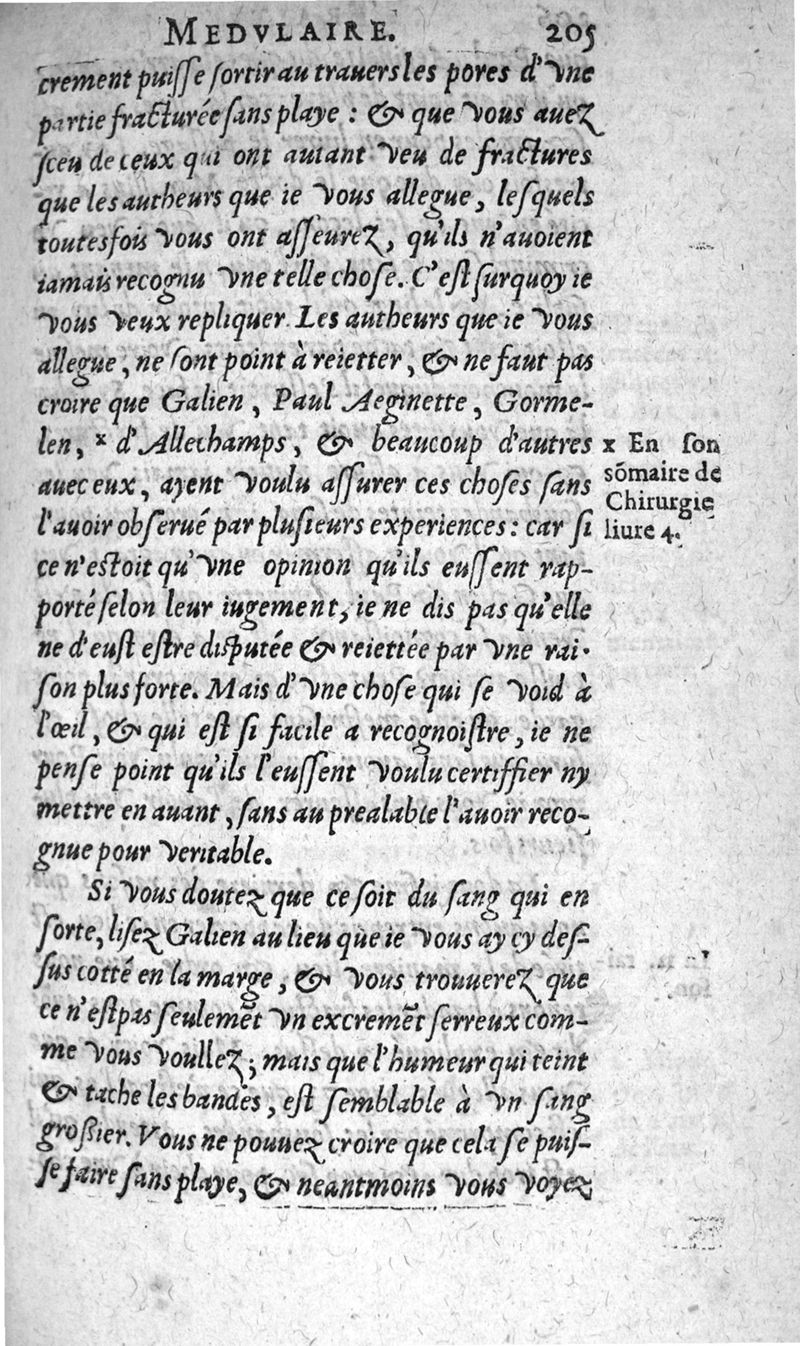 MEDVLAIRE. 205
crement puiſſe ſortir au trauers les pores d'vne
partie fracturée ſans playe : & que vous auez
ſceu de ceux qui ont autant veu de fractures
que les autheurs que ie vous allegue, leſquels
toutesfois vous ont aſſeurez, qu'ils n'auoient
iamais recognu vne telle choſe. C'eſt ſurquoy ie
vous veux repliquer. Les autheurs que ie vous
allegue, ne ſont point à reietter, & ne faut pas
croire que Galien, Paul Aeginette, Gorme-
len, x d'Allechamps, & beaucoup d'autres
auec eux, ayent voulu aſſurer ces choſes ſans
l'auoir obſerué par pluſieurs experiences: car ſi
ce n'eſtoit qu'vne opinion qu'ils euſſent rap-
porté ſelon leur iugement, ie ne dis pas qu'elle
ne d'euſt eſtre diſputée & reiettée par vne rai-
ſon plus forte. Mais d'vne choſe qui ſe void à
l'œil, & qui eſt ſi facile a recognoiſtre, ie ne
penſe point qu'ils l'euſſent voulu certiffier ny
mettre en auant, ſans au prealable l'auoir reco-
gnue pour veritable.
Si vous doutez que ce ſoit du ſang qui en
ſorte, liſez Galien au lieu que ie vous ay cy deſ-
ſus cotté en la marge, & vous trouuerez que
ce n'eſt pas ſeulemēt vn excremēt ſerreux com-
me vous voullez; mais que l'humeur qui teint
& tache les bandes, eſt ſemblable à vn ſang
groſſier. Vous ne pouuez croire que cela ſe puiſ-
ſe faire ſans playe, & neantmoins vous voyez
x En ſon
sōmaire de
Chirurgie
liure 4.